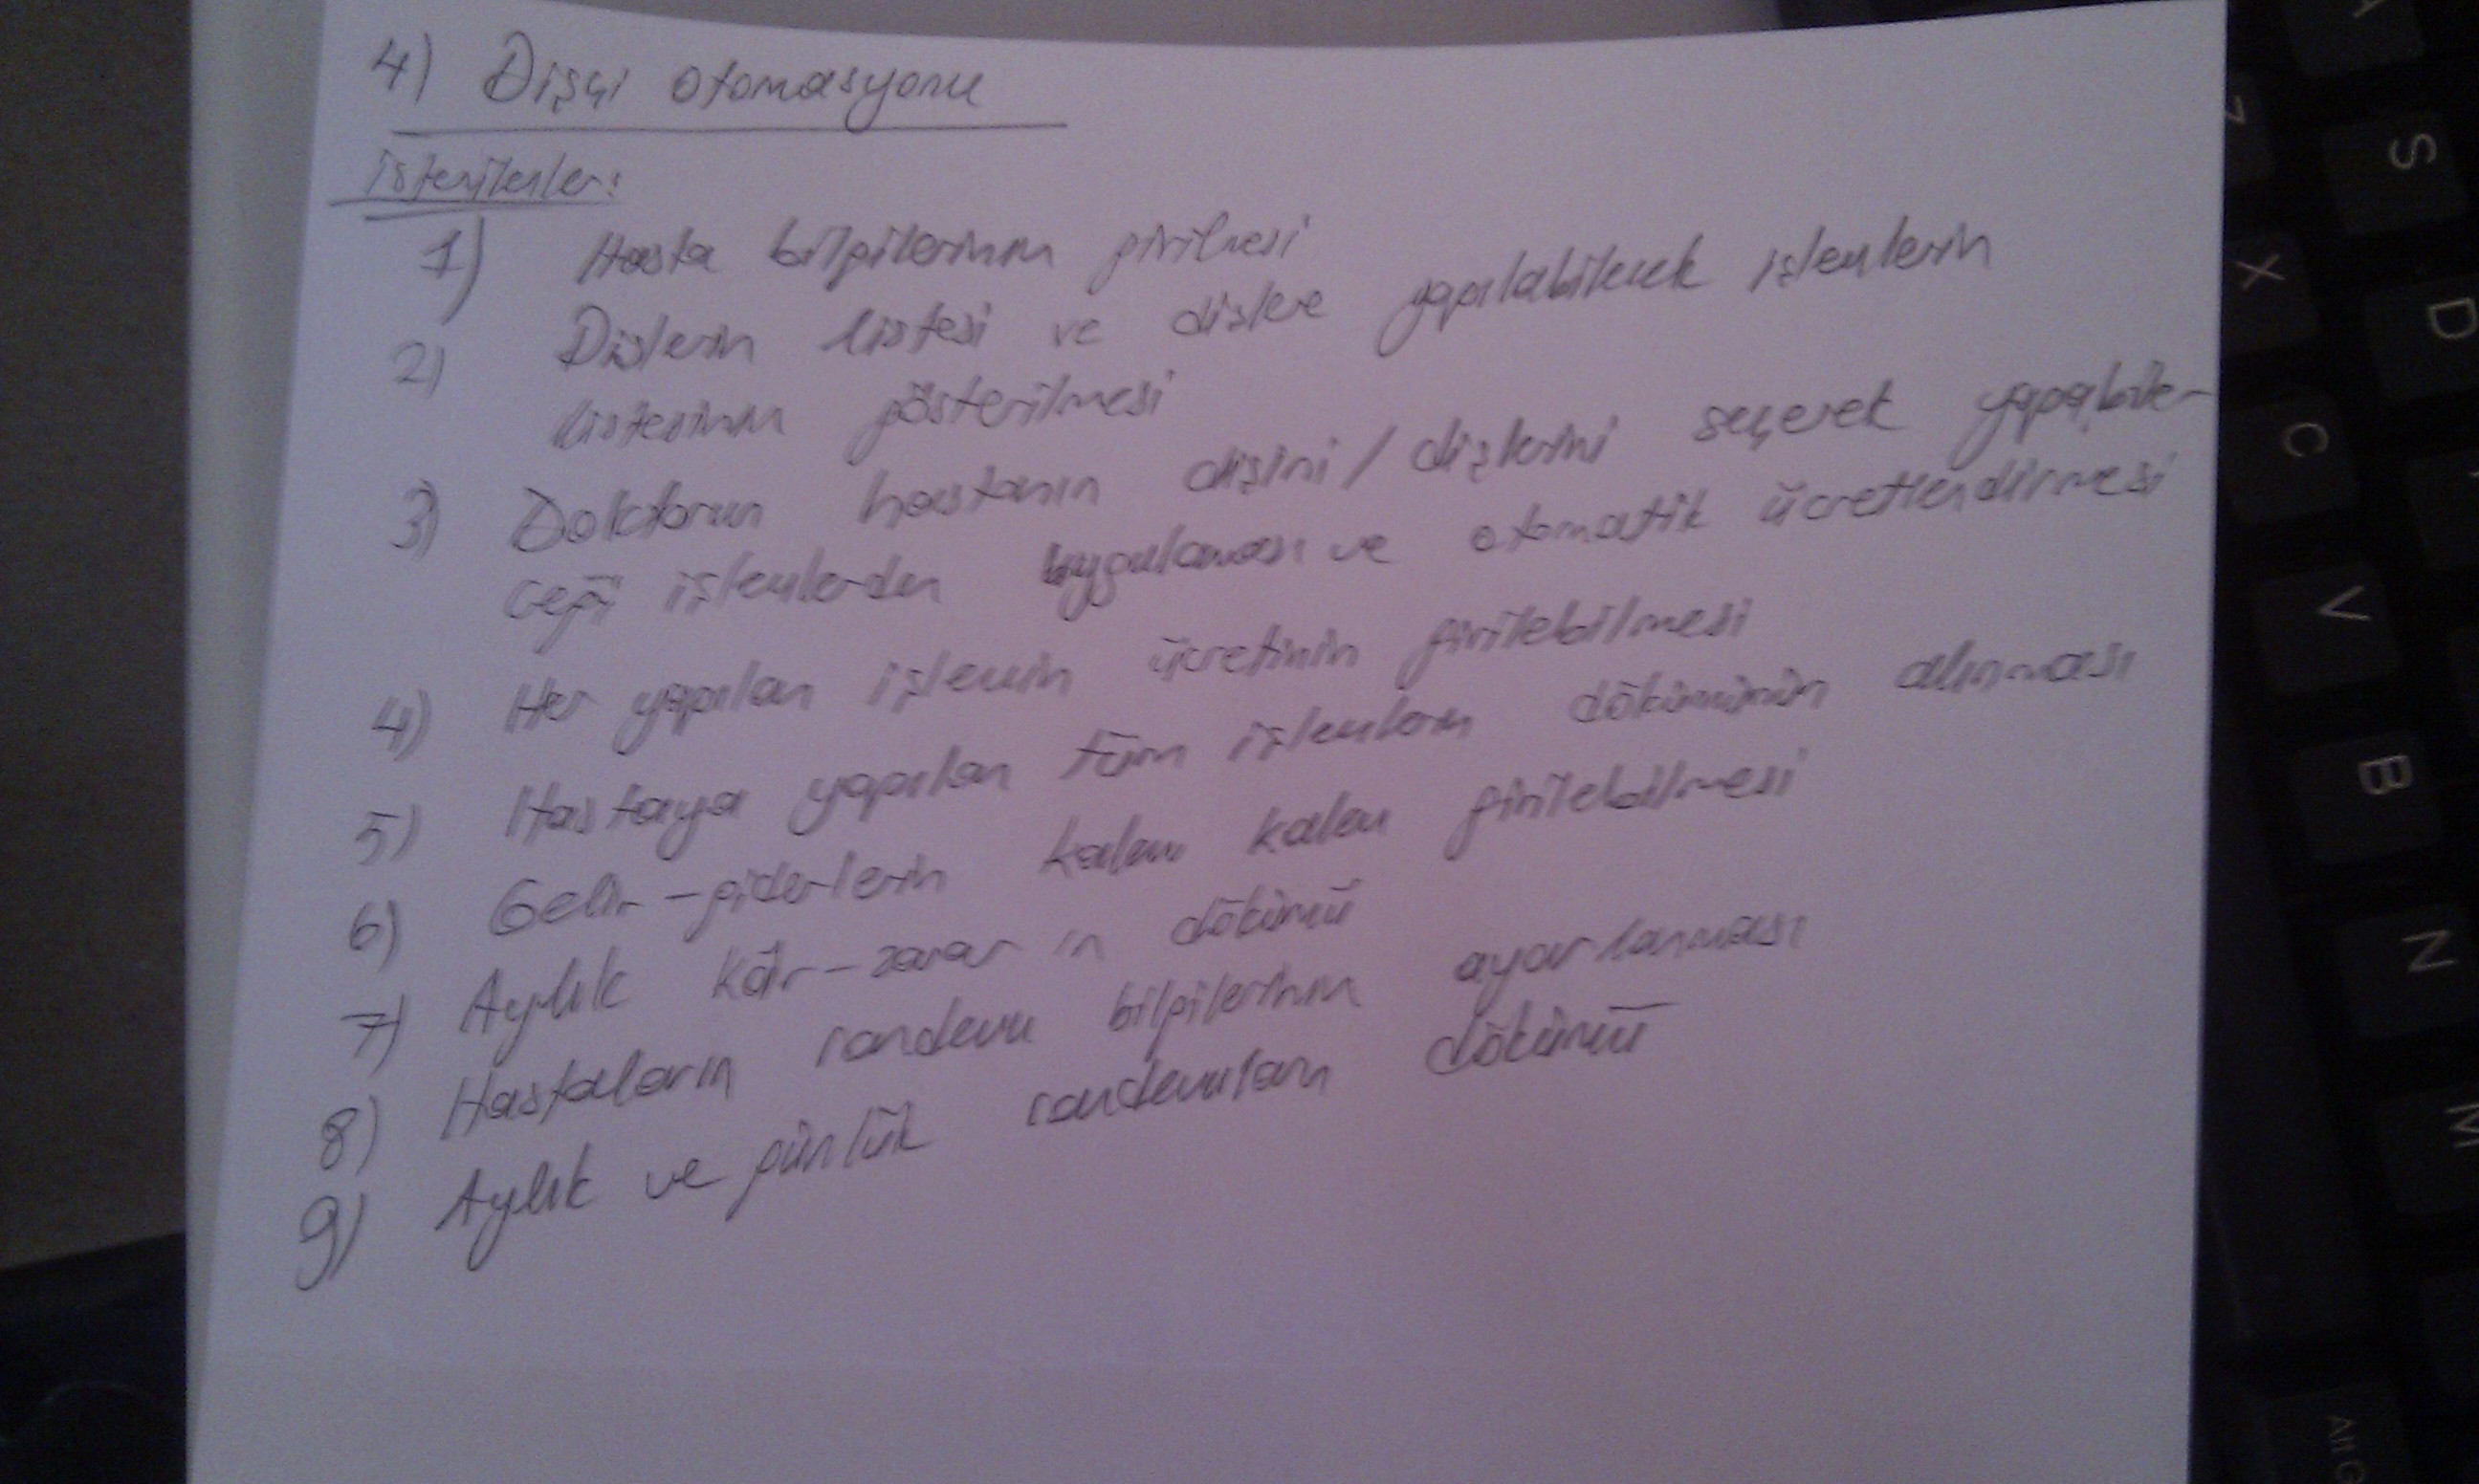 4) Dişçi otomasyonu
İsterilenler:
1) Hasta bilgilerinin girilmesi
2) Dişlerin listesi ve dişlere yapılabilecek işlemlerin
listesinin gösterilmesi
3) Doktorun hastanın dişini / dişlerini seçerek yapabile-
ceği işlemlerden uygulaması ve otomatik ücretlendirmesi
4) Her yapılan işlemin ücretinin girilebilmesi
5) Hastaya yapılan tüm işlemlerin dökümünün alınması
6) Gelir-giderlerin kalem kalem girilebilmesi
7) Aylık kâr-zarar ın dökümü
8) Hastaların randevu bilgilerinin ayarlanması
9) Aylık ve günlük randevuların dökümü
Z
S
X
D
C
V
B
N
M
Alt G